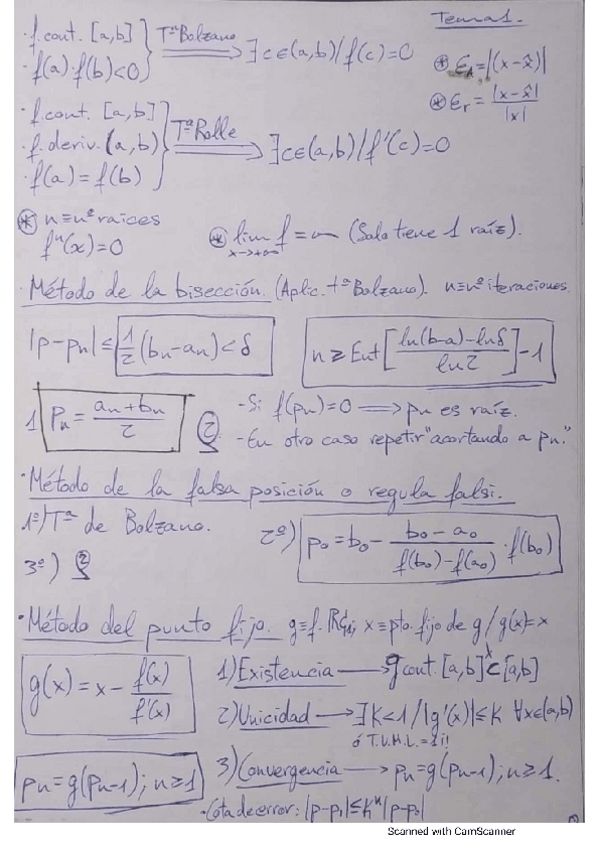 Tema 1.
· f. cont. [a,b]
· f(a)·f(b)<0
Tª Bolzano ⟹ ∃ c∈(a,b) / f(c)=0
⊛ εA = |(x-x̂)|
⊛ εr = |x-x̂| / |x|
· f. cont. [a,b]
· f. deriv. (a,b)
· f(a) = f(b)
Tª Rolle ⟹ ∃ c∈(a,b) / f'(c)=0
⊛ n ≡ nº raíces
fⁿ(x)=0
⊛ lim f = ∞ (Solo tiene 1 raíz).
x→+∞
· Método de la bisección. (Aplic. tª Bolzano). n≡nº iteraciones.
|p-pn| ≤ 1/2 (bn-an) < δ
n ≥ Ent [ (ln(b-a)-lnδ) / ln2 ] -1
1 Pn = (an+bn) / 2
2 - Si f(pn)=0 ⟹ pn es raíz.
- En otro caso repetir "acortando a pn."
· Método de la falsa posición o regula falsi.
1º) Tª de Bolzano.
2º) p0 = b0 - (b0 - a0) / (f(b0) - f(a0)) · f(b0)
3º) 2
· Método del punto fijo. g≡f. , x≡pto. fijo de g / g(x)=x
g(x) = x - f(x) / f'(x)
1) Existencia → g cont. [a,b] ⊂ [a,b]
2) Unicidad → ∃ K<1 / |g'(x)| ≤ K ∀x∈(a,b)
ó T.U.H.L. =
pn = g(pn-1); n≥1
3) Convergencia → pn = g(pn-1); n≥1.
· Cota de error: |p-p1| ≤ Kⁿ |p-p0|
Scanned with CamScanner